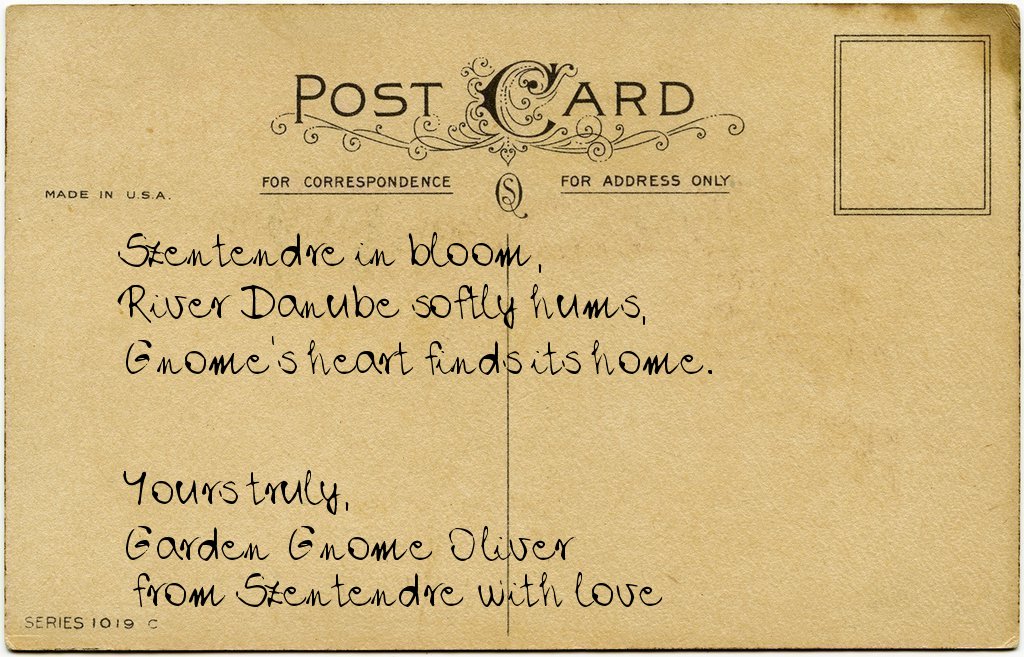 POST CARD
FOR CORRESPONDENCE
FOR ADDRESS ONLY
MADE IN U.S.A.
Szentendre in bloom,
River Danube softly hums,
Gnome's heart finds its home.
Yours truly,
Garden Gnome Oliver
from Szentendre with love
SERIES 1019 C